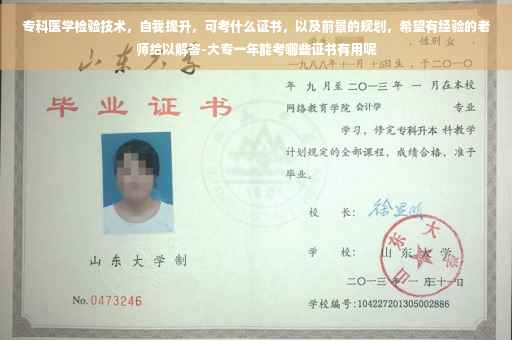 专科医学检验技术，自我提升，可考什么证书，以及前景的规划，希望有经验的老
师给以解答-大专一年能考哪些证书有用呢
山东大学
学生
性别 女 ，
一九八八年十一月十 日生，于二〇一〇
年 九 月至二〇一三年 一 月在本校
毕业证书
网络教育学院 会计学 专业
学习，修完专科升本科教学
计划规定的全部课程，成绩合格，准予
毕业。
校 长：
学 校： 山东大学
山东大学
山东大学制
二〇一三年一月三十一日
No. 0473246
学校编号:104227201305002886